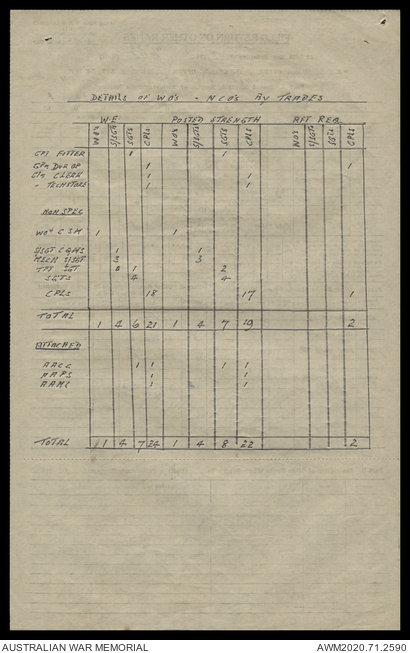 DETAILS OF WO's - NCO's BY TRADES
W.E. POSTED STRENGTH RFT REQ
WO's S/SGTS SGTS CPLS WO's S/SGTS SGTS CPLS WO's S/SGTS SGTS CPLS
FITTER 1 1
OP 1 1
CLERK 1 1
" TECH STORE 1 1
NON SPEC
CSM 1 1
S/SGT CQMS 1 1
MECH S/SGT 3 3
TPT SGT 1 2
SGTS 4 4
CPLS 18 17 1
TOTAL
1 4 6 21 1 4 7 19 2
ATTACHED
AACC 1 1 1 1
AAPS 1 1
AAMC 1 1
TOTAL 1 4 7 24 1 4 8 22 2
AUSTRALIAN WAR MEMORIAL AWM2020.71.2590